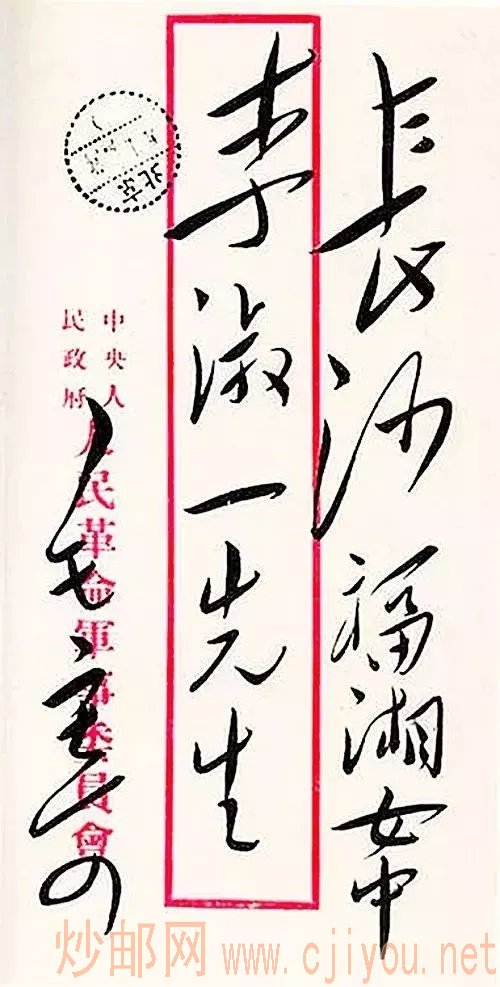 長沙福湘女中
李淑一先生
中央人
民政府
人民革命軍事委員會
毛
北京
炒邮网 www.cjiyou.net